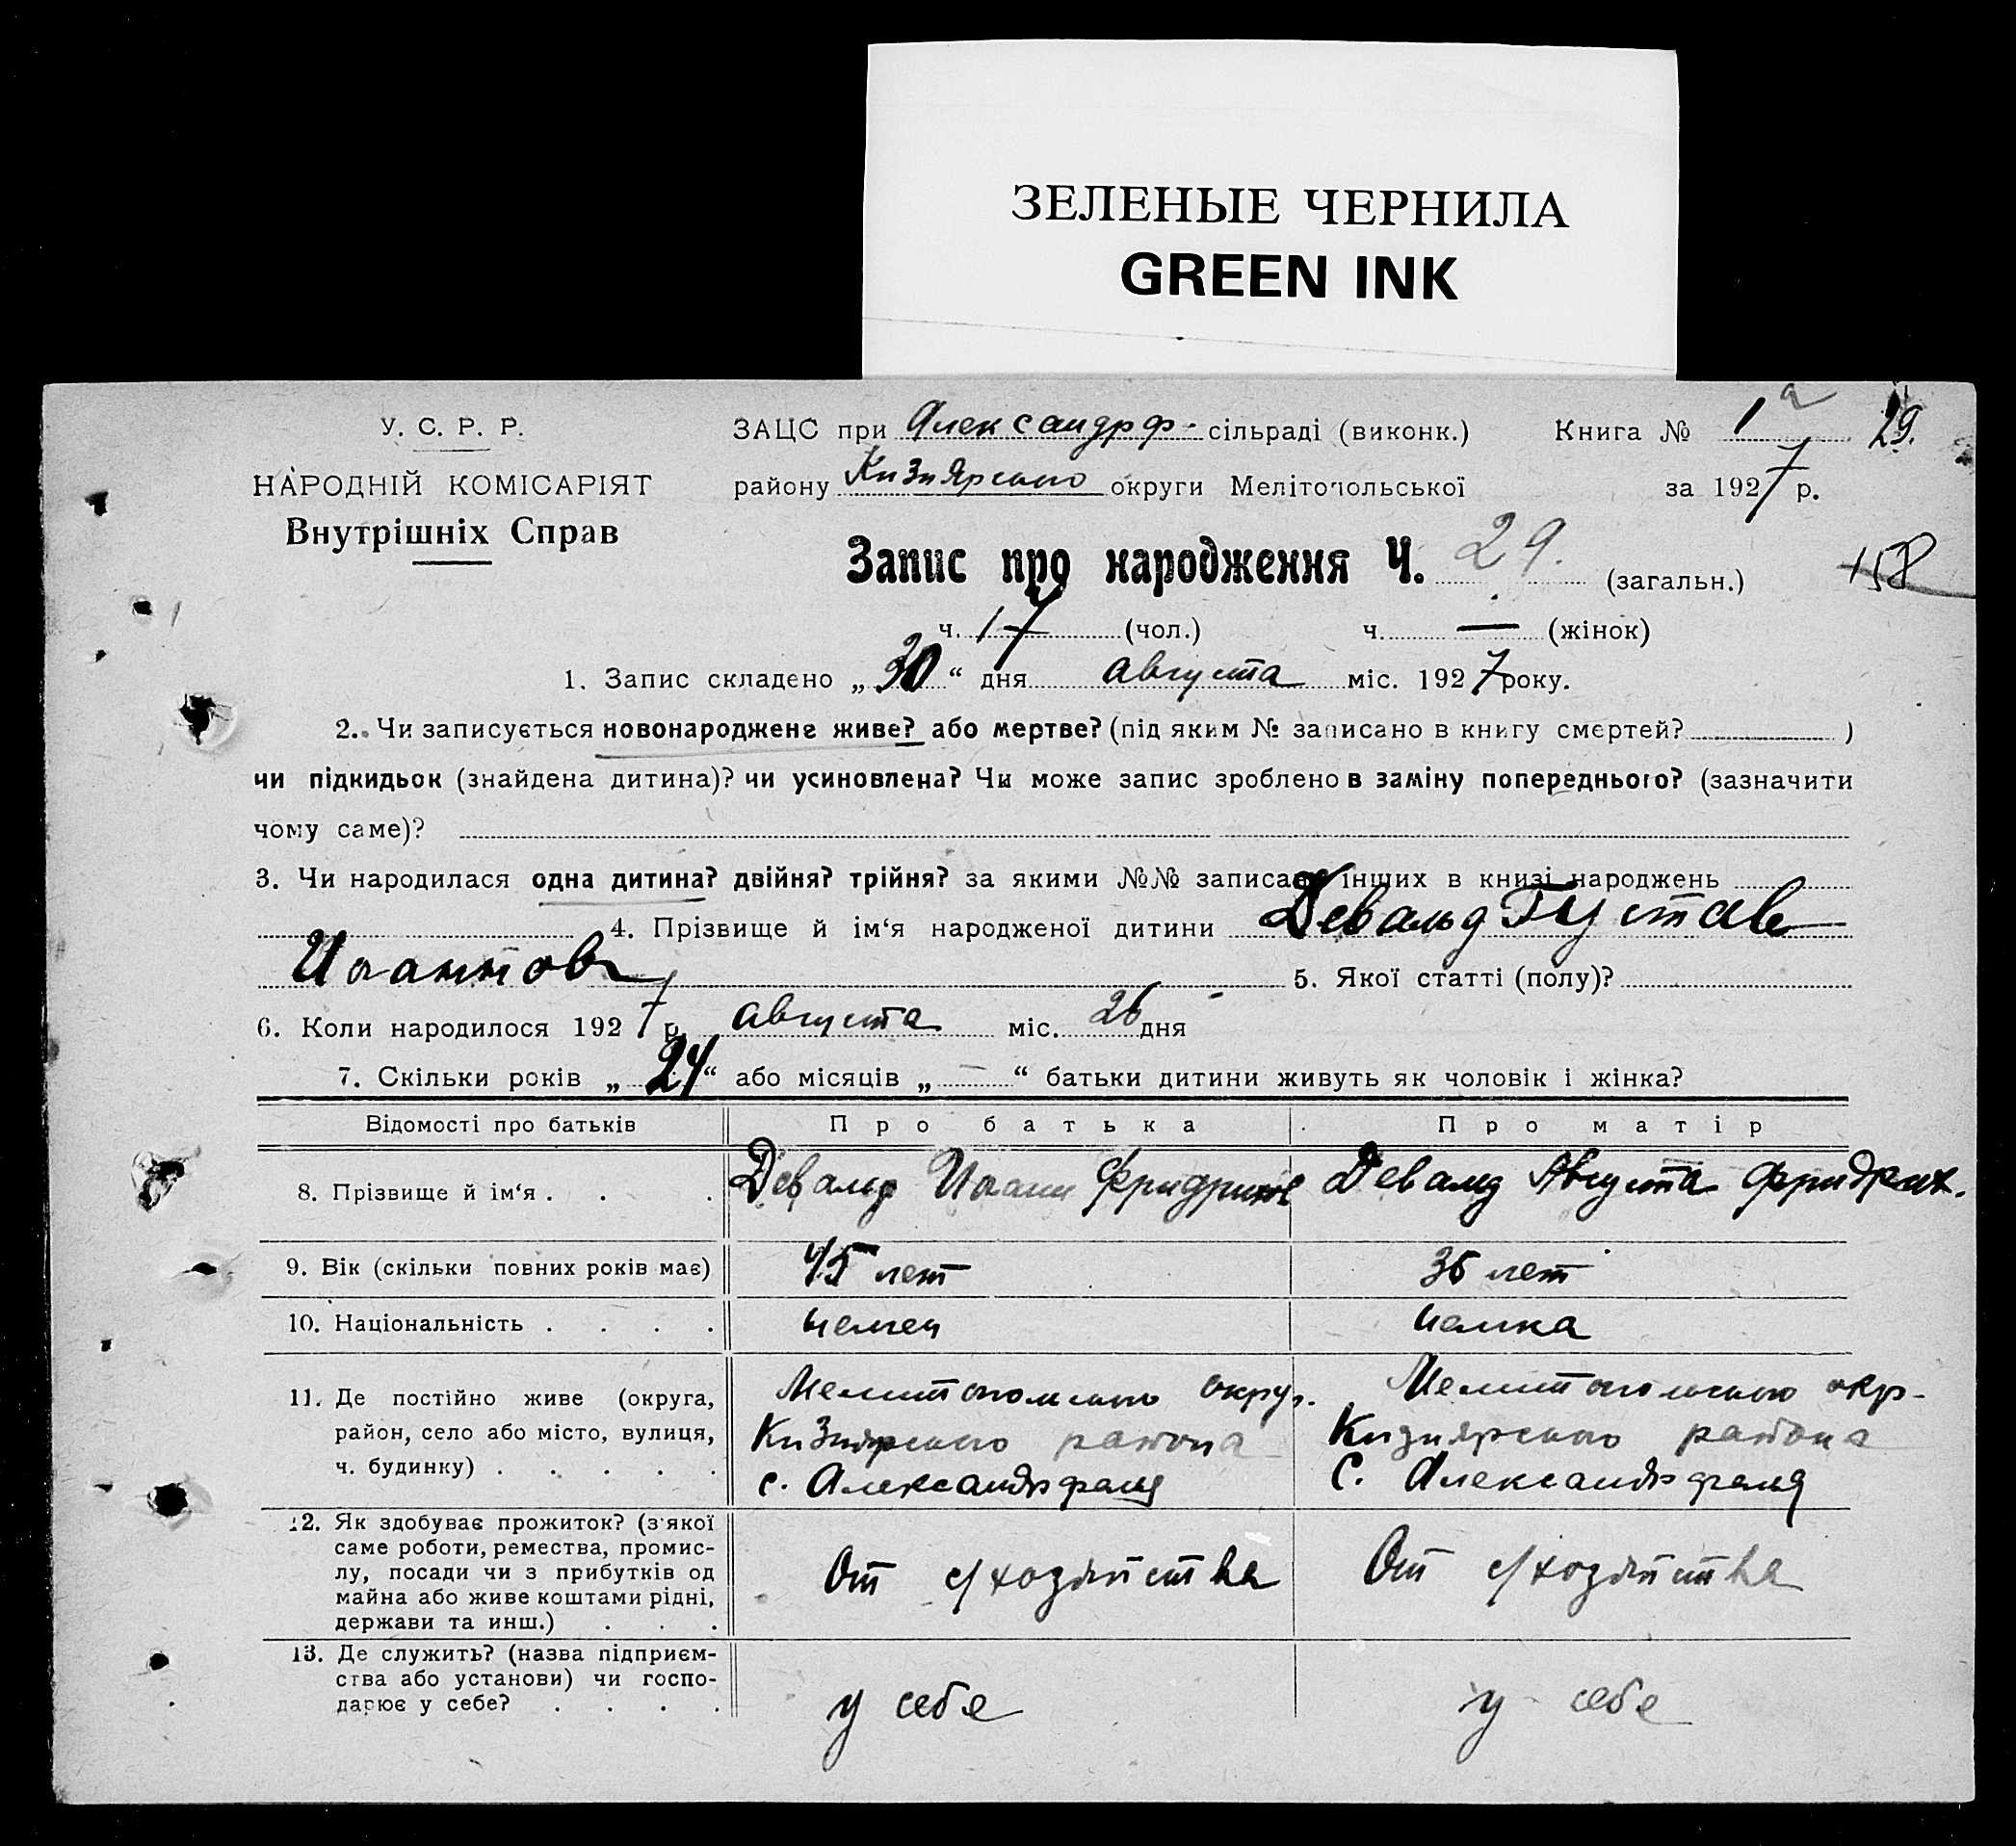 ЗЕЛЕНЫЕ ЧЕРНИЛА
GREEN INK
У. С. Р. Р.
НАРОДНІЙ КОМІСАРІЯТ
Внутрішніх Справ
ЗАЦС при Александрф- сільраді (виконк.) Книга № 1а 29.
району Кизиярського округи Мелітопольської за 1927 р.
Запис про народження Ч. 29. (загальн.) 158
ч. 17 (чол.) ч. — (жінок)
1. Запис складено „30“ дня августа міс. 1927 року.
2. Чи записується новонароджене живе? або мертве? (під яким № записано в книгу смертей? )
чи підкидьок (знайдена дитина)? чи усиновлена? Чи може запис зроблено в заміну попереднього? (зазначити
чому саме)?
3. Чи народилася одна дитина? двійня? трійня? за якими №№ записано інших в книзі народжень
4. Прізвище й ім‘я народженої дитини Девальд Густав
Иоаннов 5. Якої статті (полу)?
6. Коли народилося 1927 р. августа міс. 26 дня
7. Скільки років „24“ або місяців „—“ батьки дитини живуть як чоловік і жінка?
Відомості про батьків Про батька Про матір
8. Прізвище й ім‘я . . . Девальд Иоанн Фридрихов Девальд Августа Фридрих.
9. Вік (скільки повних років має) 45 лет 36 лет
10. Національність . . . . немец немка
11. Де постійно живе (округа,
район, село або місто, вулиця,
ч. будинку) . . . . .
Мелитопольского округ.
Кизиярского района
с. Александрфельд
Мелитопольского окр-
Кизиярского района
С. Александрфельд
12. Як здобуває прожиток? (з якої
саме роботи, ремества, промис-
лу, посади чи з прибутків од
майна або живе коштами рідні,
держави та инш.) . . .
От с/хозяйства От с/хозяйства
13. Де служить? (назва підприєм-
ства або установи) чи госпо-
дарює у себе? . . . .
у себе у себе